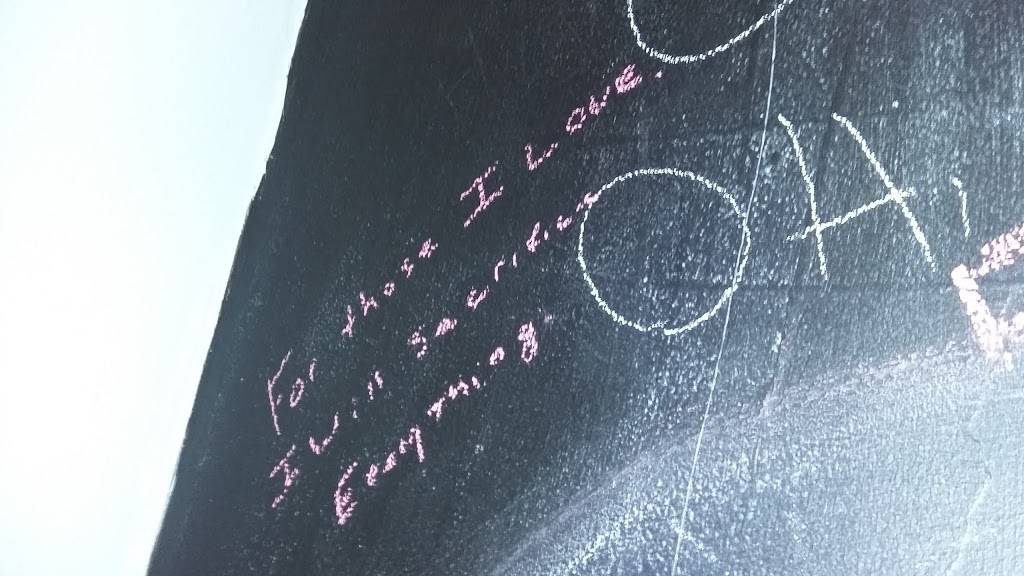 For those I Love.
I will sacrifice
Everything
OH,